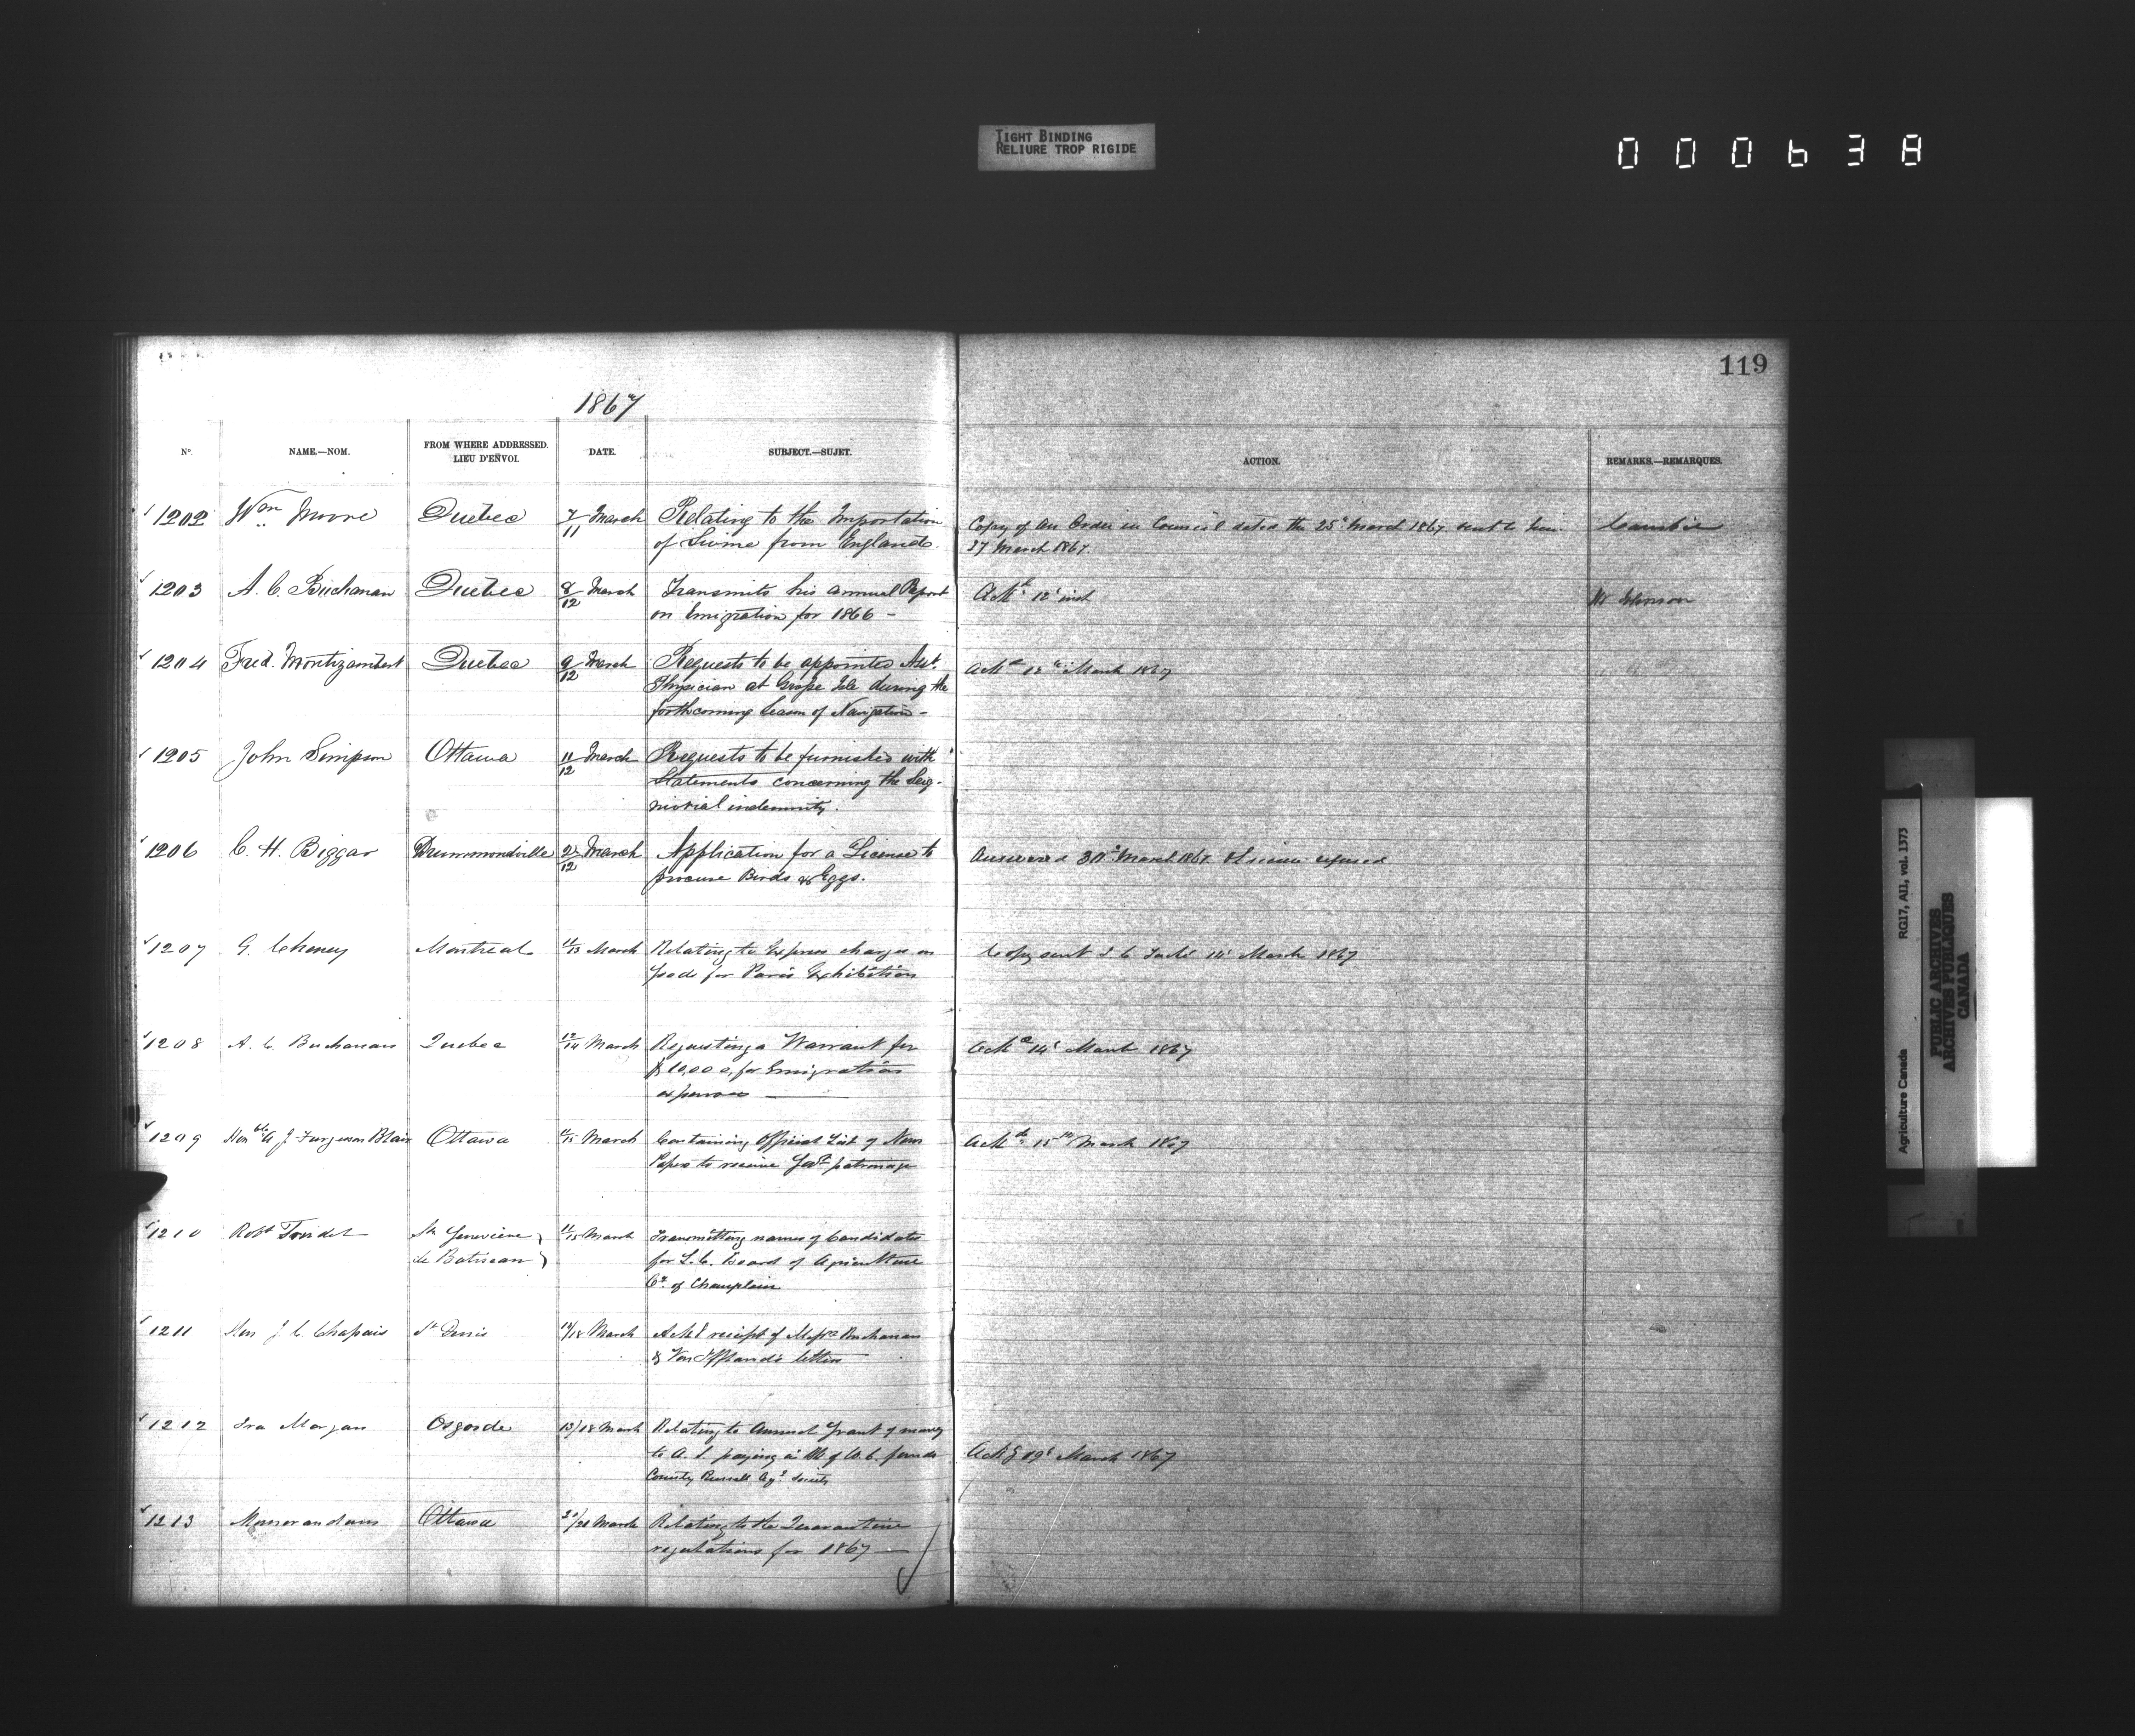 TIGHT BINDING
RELIURE TROP RIGIDE
000638
119
1867
No. NAME.—NOM. FROM WHERE ADDRESSED. LIEU D'ENVOI. DATE. SUBJECT.—SUJET. ACTION. REMARKS.—REMARQUES.
1202 Wm Moore Quebec 7/11 March Relating to the Importation Copy of an Order in Council dated the 25 March 1867 sent to him
of Swine from England. 27 March 1867.
1203 A. C. Buchanan Quebec 8/12 March Transmits his annual Report Ackd 12 inst Mr Johnson
on Emigration for 1866 -
1204 Fred. Montizambert Quebec 9/12 March Requests to be appointed Asst. Ackd March 1867
Physician at Grosse Isle during the
forthcoming Season of Navigation -
1205 John Simpson Ottawa 11/12 March Requests to be furnished with
Statements concerning the Seig-
niorial indemnity.
1206 C. H. Biggar Drummondville 2/12 March Application for a License to Answered March 1867 License refused
procure Birds & Eggs.
1207 G. Cheney Montreal March Relating to Express charges on Copy sent J. C. Taché 14 March 1867
goods for Paris Exhibition
1208 A. C. Buchanan Quebec 13/14 March Requesting a Warrant for Ackd 14 March 1867
$10,000, for Emigration
expenses
1209 Honble A J Fergusson Blair Ottawa March Containing Official List of News Ackd 15th March 1867
Papers to receive Govt patronage
1210 Robt Trudel Ste Genevieve March Transmitting names of Candidates
de Batiscan for L. C. Board of Agriculture
Co. of Champlain
1211 Hon J. C. Chapais St Denis March Ackd receipt of Messrs Buchanan
& Van Iffland's letters
1212 Ira Morgan Osgoode 13/18 March Relating to Annual Grant of money
to A. S. paying in of U. C. funds Ackd 19 March 1867
County Russell Agl Society
1213 Memorandum Ottawa 20/20 March Relating to the Quarantine
regulations for 1867
Agriculture Canada RG17, AII, vol. 1373
PUBLIC ARCHIVES
ARCHIVES PUBLIQUES
CANADA